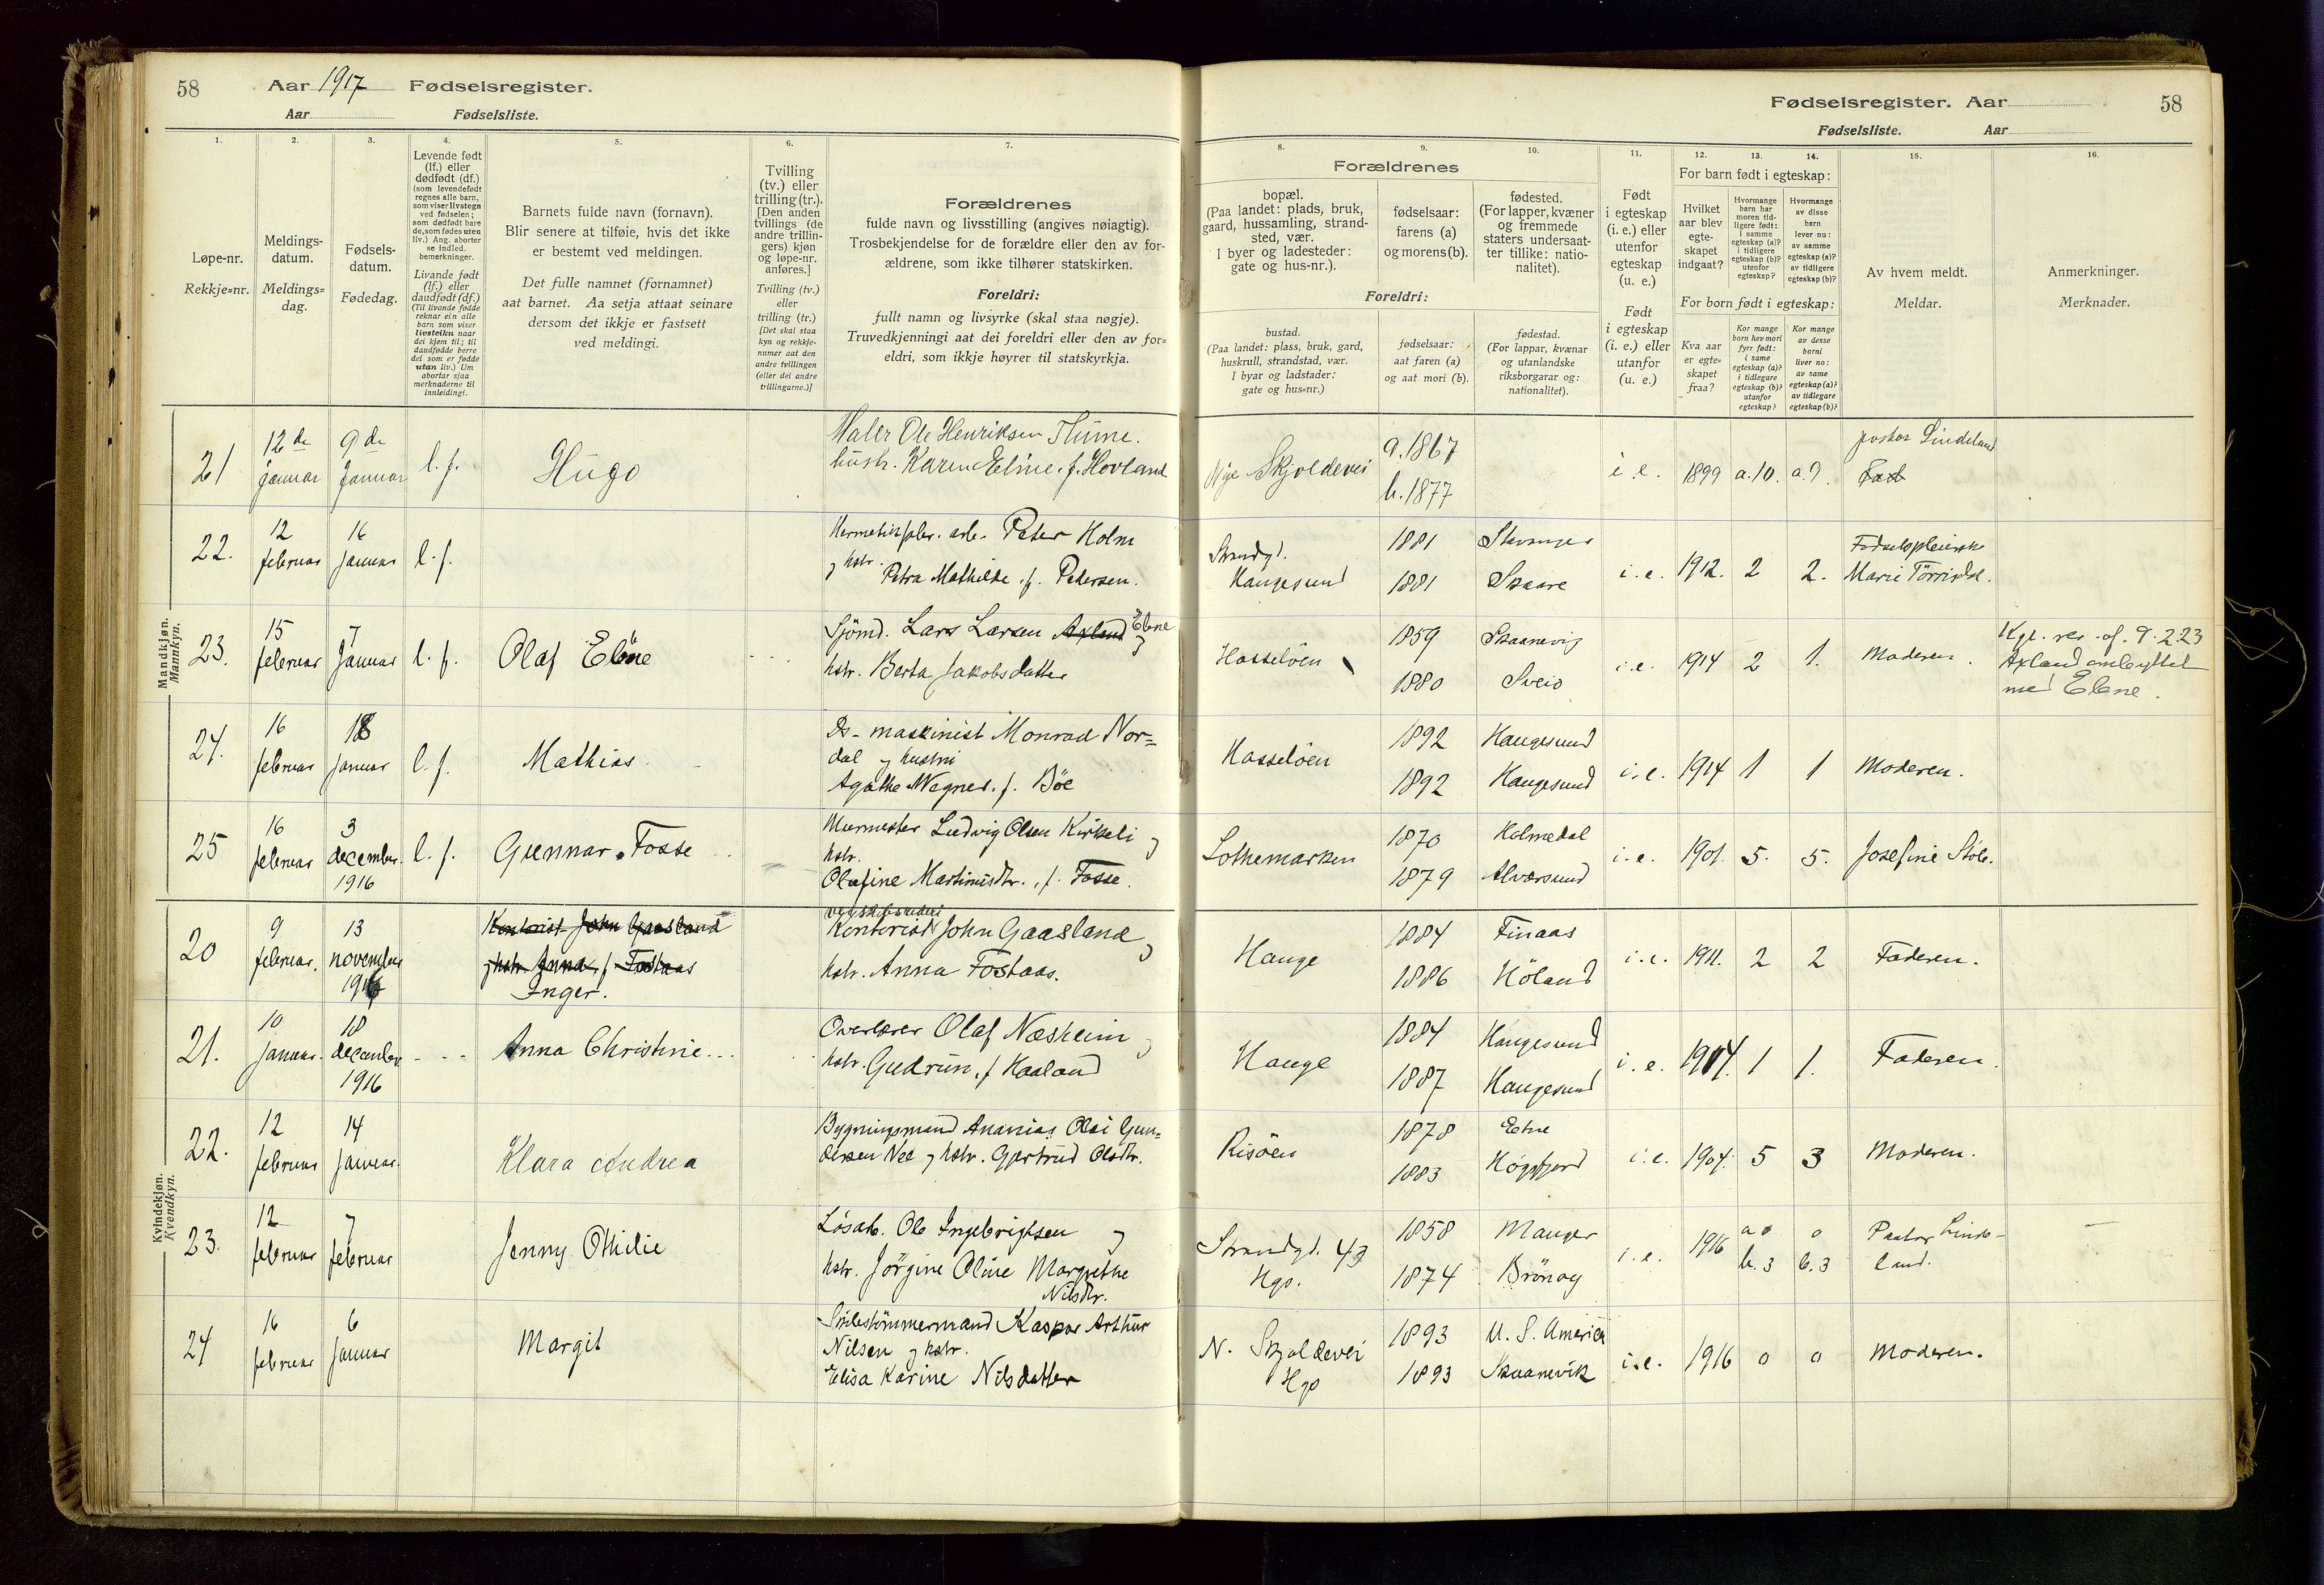 58
Aar 1917 Fødselsregister.
Aar Fødselsliste.
Fødselsregister. Aar
58
Fødselsliste. Aar
1. 2. 3. 4. 5. 6. 7.
Løpe-nr.
Rekkje=nr.
Meldings-
datum.
Meldings=
dag.
Fødsels-
datum.
Fødedag.
Levende født
(lf.) eller
dødfødt (df.)
(som levendefødt
regnes alle barn,
som viser livstegn
ved fødselen;
som dødfødt bare
de, som fødes uten
liv.) Ang. aborter
se indled.
bemerkninger.
Livande født
(lf.) eller
daudfødt (df.)
(Til livande fødde
reknar ein alle
barn som viser
livsteikn naar
dei kjem til; til
daudfødde berre
dei som er fødde
utan liv.) Um
abortar sjaa
merknaderne til
innleidingi.
Barnets fulde navn (fornavn).
Blir senere at tilføie, hvis det ikke
er bestemt ved meldingen.
Det fulle namnet (fornamnet)
aat barnet. Aa setja attaat seinare
dersom det ikkje er fastsett
ved meldingi.
Tvilling
(tv.) eller
trilling (tr.).
[Den anden
tvillings (de
andre trillin-
gers) kjøn
og løpe-nr.
anføres.]
Tvilling (tv.)
eller
trilling (tr.)
[Det skal staa
kyn og rekkje-
numer aat den
andre tvillingen
(eller dei andre
trillingarne.)]
Forældrenes
fulde navn og livsstilling (angives nøiagtig).
Trosbekjendelse for de forældre eller den av for-
ældrene, som ikke tilhører statskirken.
Foreldri:
fullt namn og livsyrke (skal staa nøgje).
Truvedkjenningi aat dei foreldri eller den av for=
eldri, som ikkje høyrer til statskyrkja.
8. 9. 10. 11. 12. 13. 14. 15. 16.
Forældrenes
bopæl.
(Paa landet: plads, bruk,
gaard, hussamling, strand-
sted, vær.
I byer og ladesteder:
gate og hus-nr.).
fødselsaar:
farens (a)
og morens (b).
fødested.
(For lapper, kvæner
og fremmede
staters undersaat-
ter tillike: natio-
nalitet).
Foreldri:
bustad.
(Paa landet: plass, bruk, gard,
huskrull, strandstad, vær.
I byar og ladstader:
gate og hus=nr.)
fødselsaar:
aat faren (a)
og aat mori (b).
fødestad.
(For lappar, kvænar
og utanlandske
riksborgarar og:
nationalitet).
Født
i egteskap
(i. e.) eller
utenfor
egteskap
(u. e.)
Født
i egteskap
(i. e.) eller
utanfor
egteskap
(u. e.)
For barn født i egteskap:
Hvilket
aar blev
egte-
skapet
indgaat?
Hvormange
barn har
moren tid-
ligere født:
i samme
egteskap (a)?
i tidligere
egteskap (b)?
utenfor
egteskap?
Hvormange
av disse
barn
lever nu:
av samme
egteskap (a)?
av tidligere
egteskap (b)?
For born født i egteskap:
Kva aar
er egte=
skapet
fraa?
Kor mange
born hev mori
fyrr født:
i same
egteskap (a)?
i tidlegare
egteskap (b)?
utanfor
egteskap?
Kor mange
av desse
borni
liver no:
av same
egteskap (a)?
av tidlegare
egteskap (b)?
Av hvem meldt.
Meldar.
Anmerkninger.
Merknader.
Mandkjøn.
Mannkyn.
21 12de januar 9de Januar l. f. Hugo
Maler Ole Henriksen Thime.
hustr. Karen Eline, f. Hovland
Nye Skjoldevei a. 1867 b. 1877 i. e. 1899 a. 10. a. 9. pastor Lindeland
22. 12 februar 16 januar l. f.
Hermetikfabr. arb. Peter Holm
og hstr. Petra Mathilde, f. Pedersen.
Strandgt. Haugesund 1881 Stavanger 1881 Skaare i. e. 1912. 2 2. Fødselspleierske Marie
23. 15 februar 7 Januar l. f. Olaf Elene
Sjömd. Lars Larsen Axland Elene og
hstr. Berta Jakobsdatter
Hasselöen 1859 Skaanevig 1880 Sveio i. e. 1914 2 1. Moderen.
Kgl. res. af 9.2.23
Axland ombyttet
med Elene.
24. 16 februar 18 januar l. f. Mathias
Ds-maskinist Monrad Nor=
dal og hustru
Agathe Wagner, f. Böe
Hasselöen 1892 Haugesund 1892 Haugesund i. e. 1914 1 1 Moderen.
25 16 februar 3 december 1916 l. f. Gunnar Fosse
Murmester Ludvig Olsen Kirkeli og
hstr.
Olufine Martinusdtr., f. Fosse.
Lothemarken 1870 Holmedal 1879 Alversund i. e. 1901. 5. 5. Josefine
Kvindekjøn.
Kvendkyn.
20 9 februar. 13 november 1916
Kontorist John Gaasland
og hstr. Anna, f. Fostaas
Inger.
Kontorist John Gaasland og
hstr. Anna Fostaas.
Hauge 1884 Finaas 1886 Höland i. e. 1911. 2 2 Faderen.
21. 10 januar. 18 december 1916 Anna Christine
Overlærer Olaf Næsheim og
hstr. Gudrun, f Haaland
Hauge 1884 Haugesund 1887 Haugesund i. e. 1914. 1 1. Faderen.
22. 12 februar 14 januar. Klara Andrea
Bygningsmand Ananias Olai Gun=
dersen Nee og hstr. Gjertrud Olsdtr.
Risöen 1878 Etne 1883 Högsfjord i. e. 1904. 5 3 Moderen.
23. 12 februar 7 februar Jenny Othilie
Lösarb. Ole Ingebrigtsen og
hstr. Jörgine Oline Margrethe
Nilsdtr.
Strandgt. 43 Hgs. 1858 Manger 1874 Brönöy i. e. 1916 a 0 b. 3 0 b. 3 Pastor Linde-
land.
24 16 februar 6 januar Margit
Skibstömmermand Kaspar Arthur
Nilsen og hstr.
Elisa Karine Nilsdatter
N. Skjoldevei Hgs 1893 U. S. America 1893 Skaanevik i. e. 1916 0 0 Moderen.